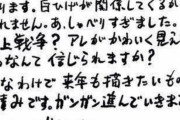 ります。白ひげが関係してくるか
れません。あ、しゃべりすぎました。
上戦争？アレがかわいく見え
なんて信じられますか？
なわけで来年も描きたいもの
積みです。ガンガン進んでいきま